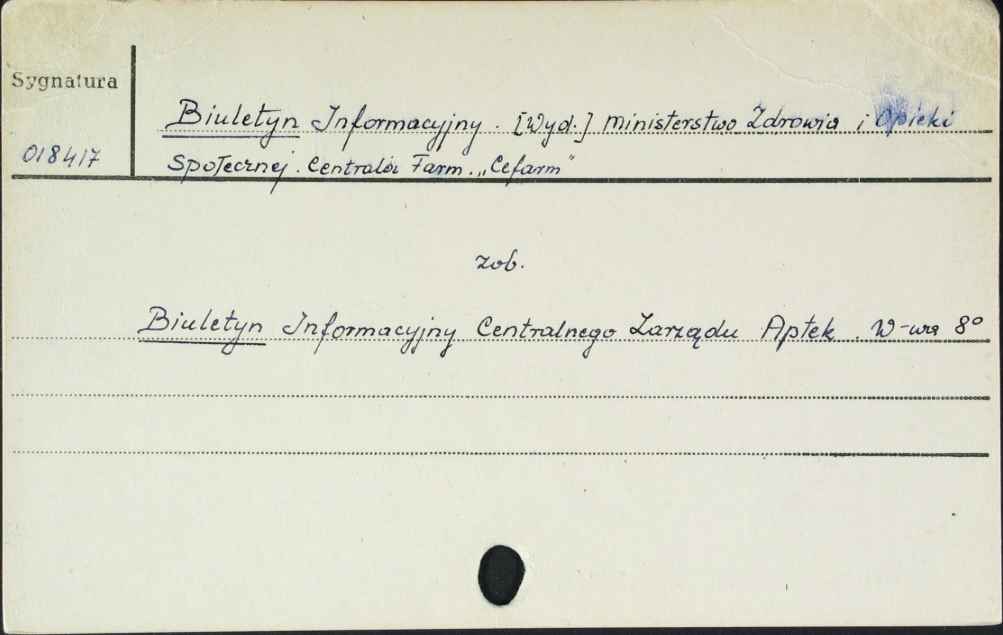 Sygnatura
Biuletyn Informacyjny. [Wyd.] Ministerstwo Zdrowia i Opieki
018417
Społecznej. Centrala Farm. „Cefarm"
zob.
Biuletyn Informacyjny Centralnego Zarządu Aptek. W-wa 8°